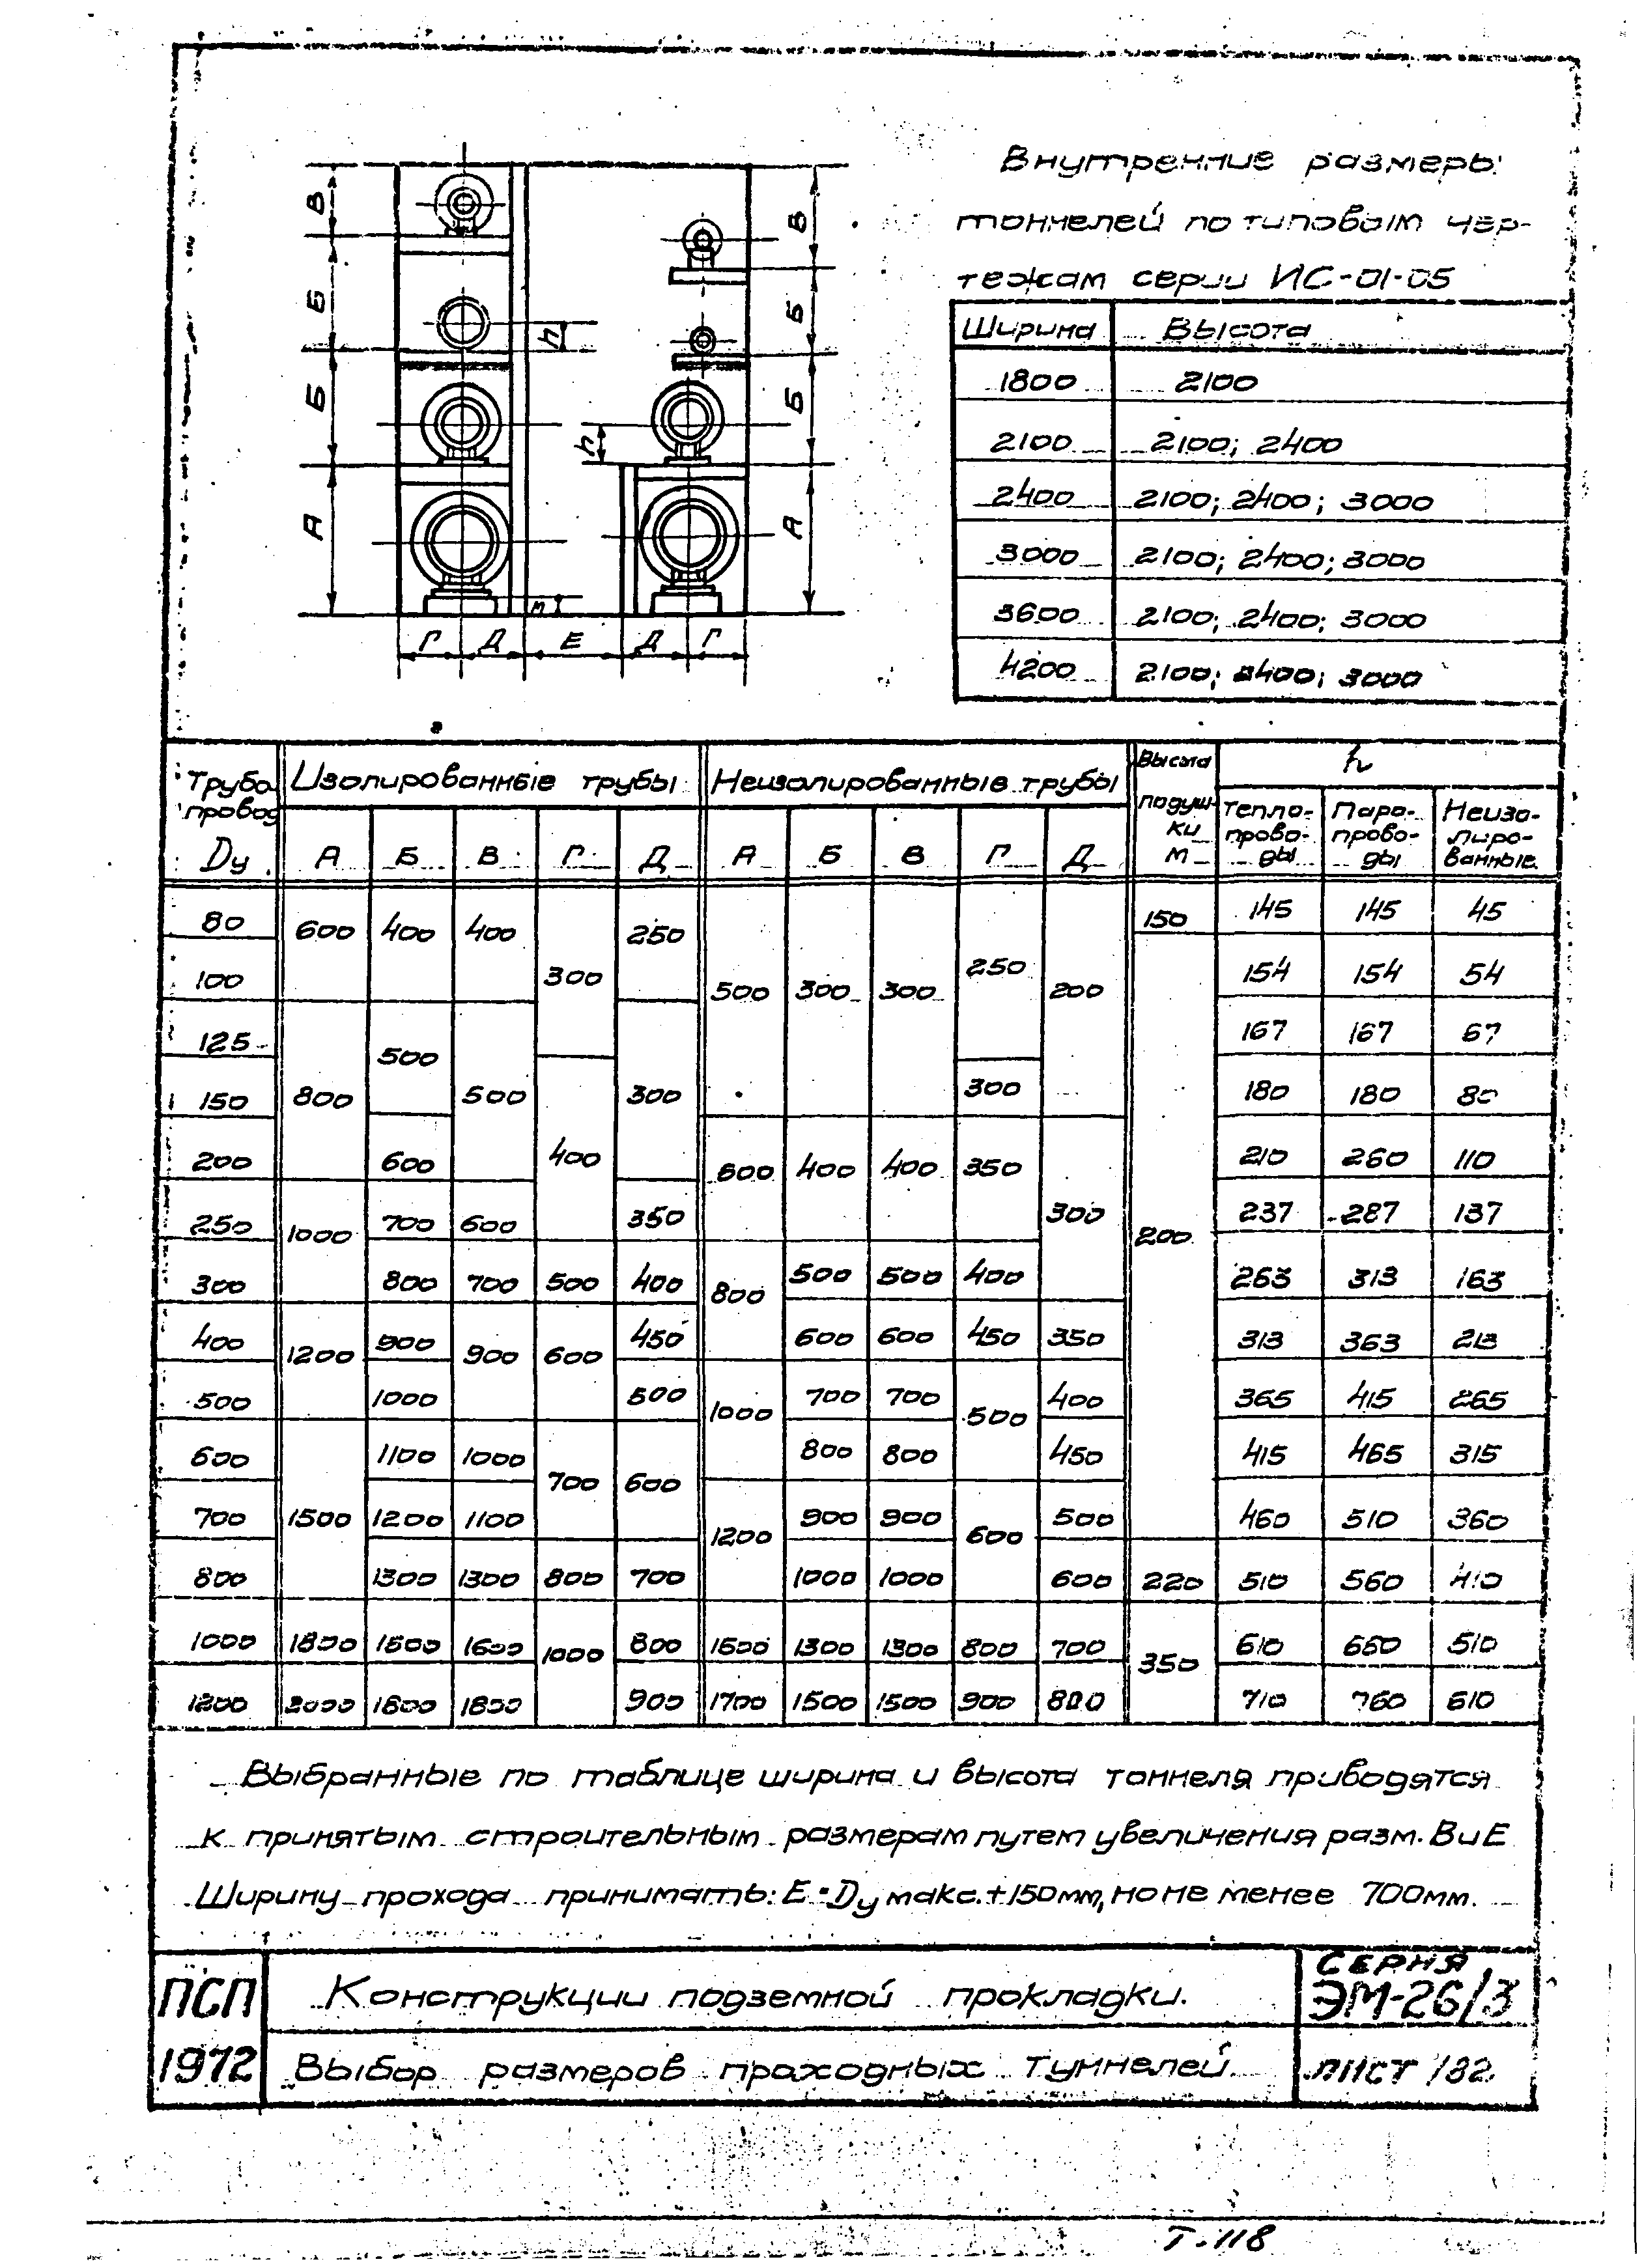 Внутренние размеры
тоннелей по типовым чер-
тежам серии ИС-01-05
Ширина Высота
1800 2100
2100 2100; 2400
2400 2100; 2400; 3000
3000 2100; 2400; 3000
3600 2100; 2400; 3000
4200 2100; 2400; 3000
В Б Б А
В Б Б А
h
h
m
Г Д Е Д Г
Трубо- провод Dу
Изолированные трубы
Неизолированные трубы
Высота подуш- ки m
h
Тепло- прово- ды
Паро- прово- ды
Неизо- лиро- ванные
А Б В Г Д А Б В Г Д
80 600 400 400 250 150 145 145 45
100 300 500 300 300 250 200 154 154 54
125 500 167 167 67
150 800 500 300 300 180 180 80
200 600 400 600 400 400 350 210 260 110
250 1000 700 600 350 300 200 237 287 137
300 800 700 500 400 800 500 500 400 263 313 163
400 1200 900 900 600 450 600 600 450 350 313 363 213
500 1000 500 1000 700 700 500 400 365 415 265
600 1100 1000 700 600 800 800 450 415 465 315
700 1500 1200 1100 1200 900 900 600 500 460 510 360
800 1300 1300 800 700 1000 1000 600 220 510 560 410
1000 1800 1600 1000 800 1300 1300 800 700 350 610 660 510
1200 2000 1800 1800 900 1700 1500 1500 900 800 710 760 610
Выбранные по таблице ширина и высота тоннеля приводятся
к принятым строительным размерам путем увеличения разм. В и Е
Ширину прохода принимать: Е = Dу макс. + 150мм, но не менее 700мм.
ПСП
1972
Конструкции подземной прокладки.
Выбор размеров проходных туннелей.
СЕРИЯ
ЭМ-26/3
ЛИСТ 182
Т-118